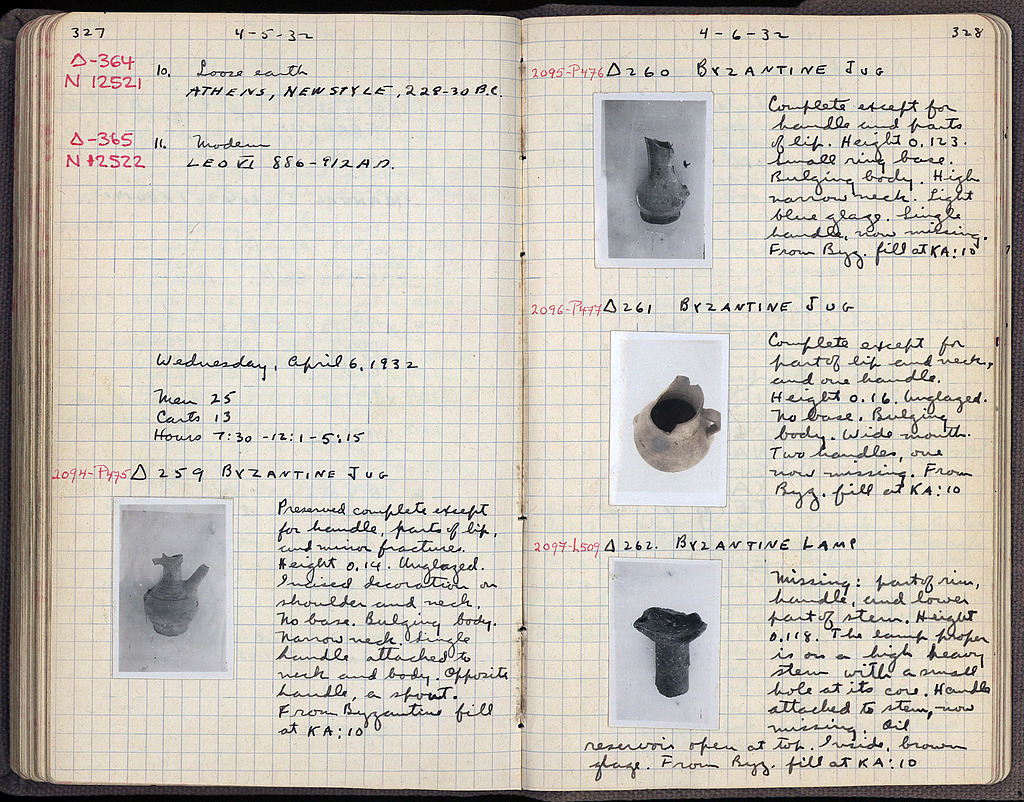 327
4-5-32
Δ-364
N 12521
10. Loose earth
ATHENS, NEW STYLE, 229-30 B.C.
Δ-365
N 12522
11. Modern
LEO VI 886-912 A.D.
Wednesday, April 6, 1932
Men 25
Carts 13
Hours 7:30-12:1-5:15
2094-P475 Δ 259 BYZANTINE JUG
Preserved complete except
for handle, parts of lip,
and minor fractures.
Height 0.14. Unglazed.
Incised decoration on
shoulder and neck.
No base. Bulging body.
Narrow neck. Single
handle attached to
neck and body. Opposite
handle, a spout.
From Byzantine fill
at KA:10
4-6-32
328
2095-P476 Δ 260 BYZANTINE JUG
Complete except for
handle and parts
of lip. Height 0.123.
Small ring base.
Bulging body. High
narrow neck. Light
blue glaze. Single
handle, now missing.
From Byz. fill at KA:10
2096-P477 Δ 261 BYZANTINE JUG
Complete except for
part of lip and neck,
and one handle.
Height 0.16. Unglazed.
No base. Bulging
body. Wide mouth.
Two handles, one
now missing. From
Byz. fill at KA:10
2097-L509 Δ 262. BYZANTINE LAMP
Missing: part of rim,
handle, and lower
part of stem. Height
0.118. The lamp proper
is on a high heavy
stem with a small
hole at its core. Handle
attached to stem, now
missing. Oil
reservoir open at top. Inside, brown
glaze. From Byz. fill at KA:10